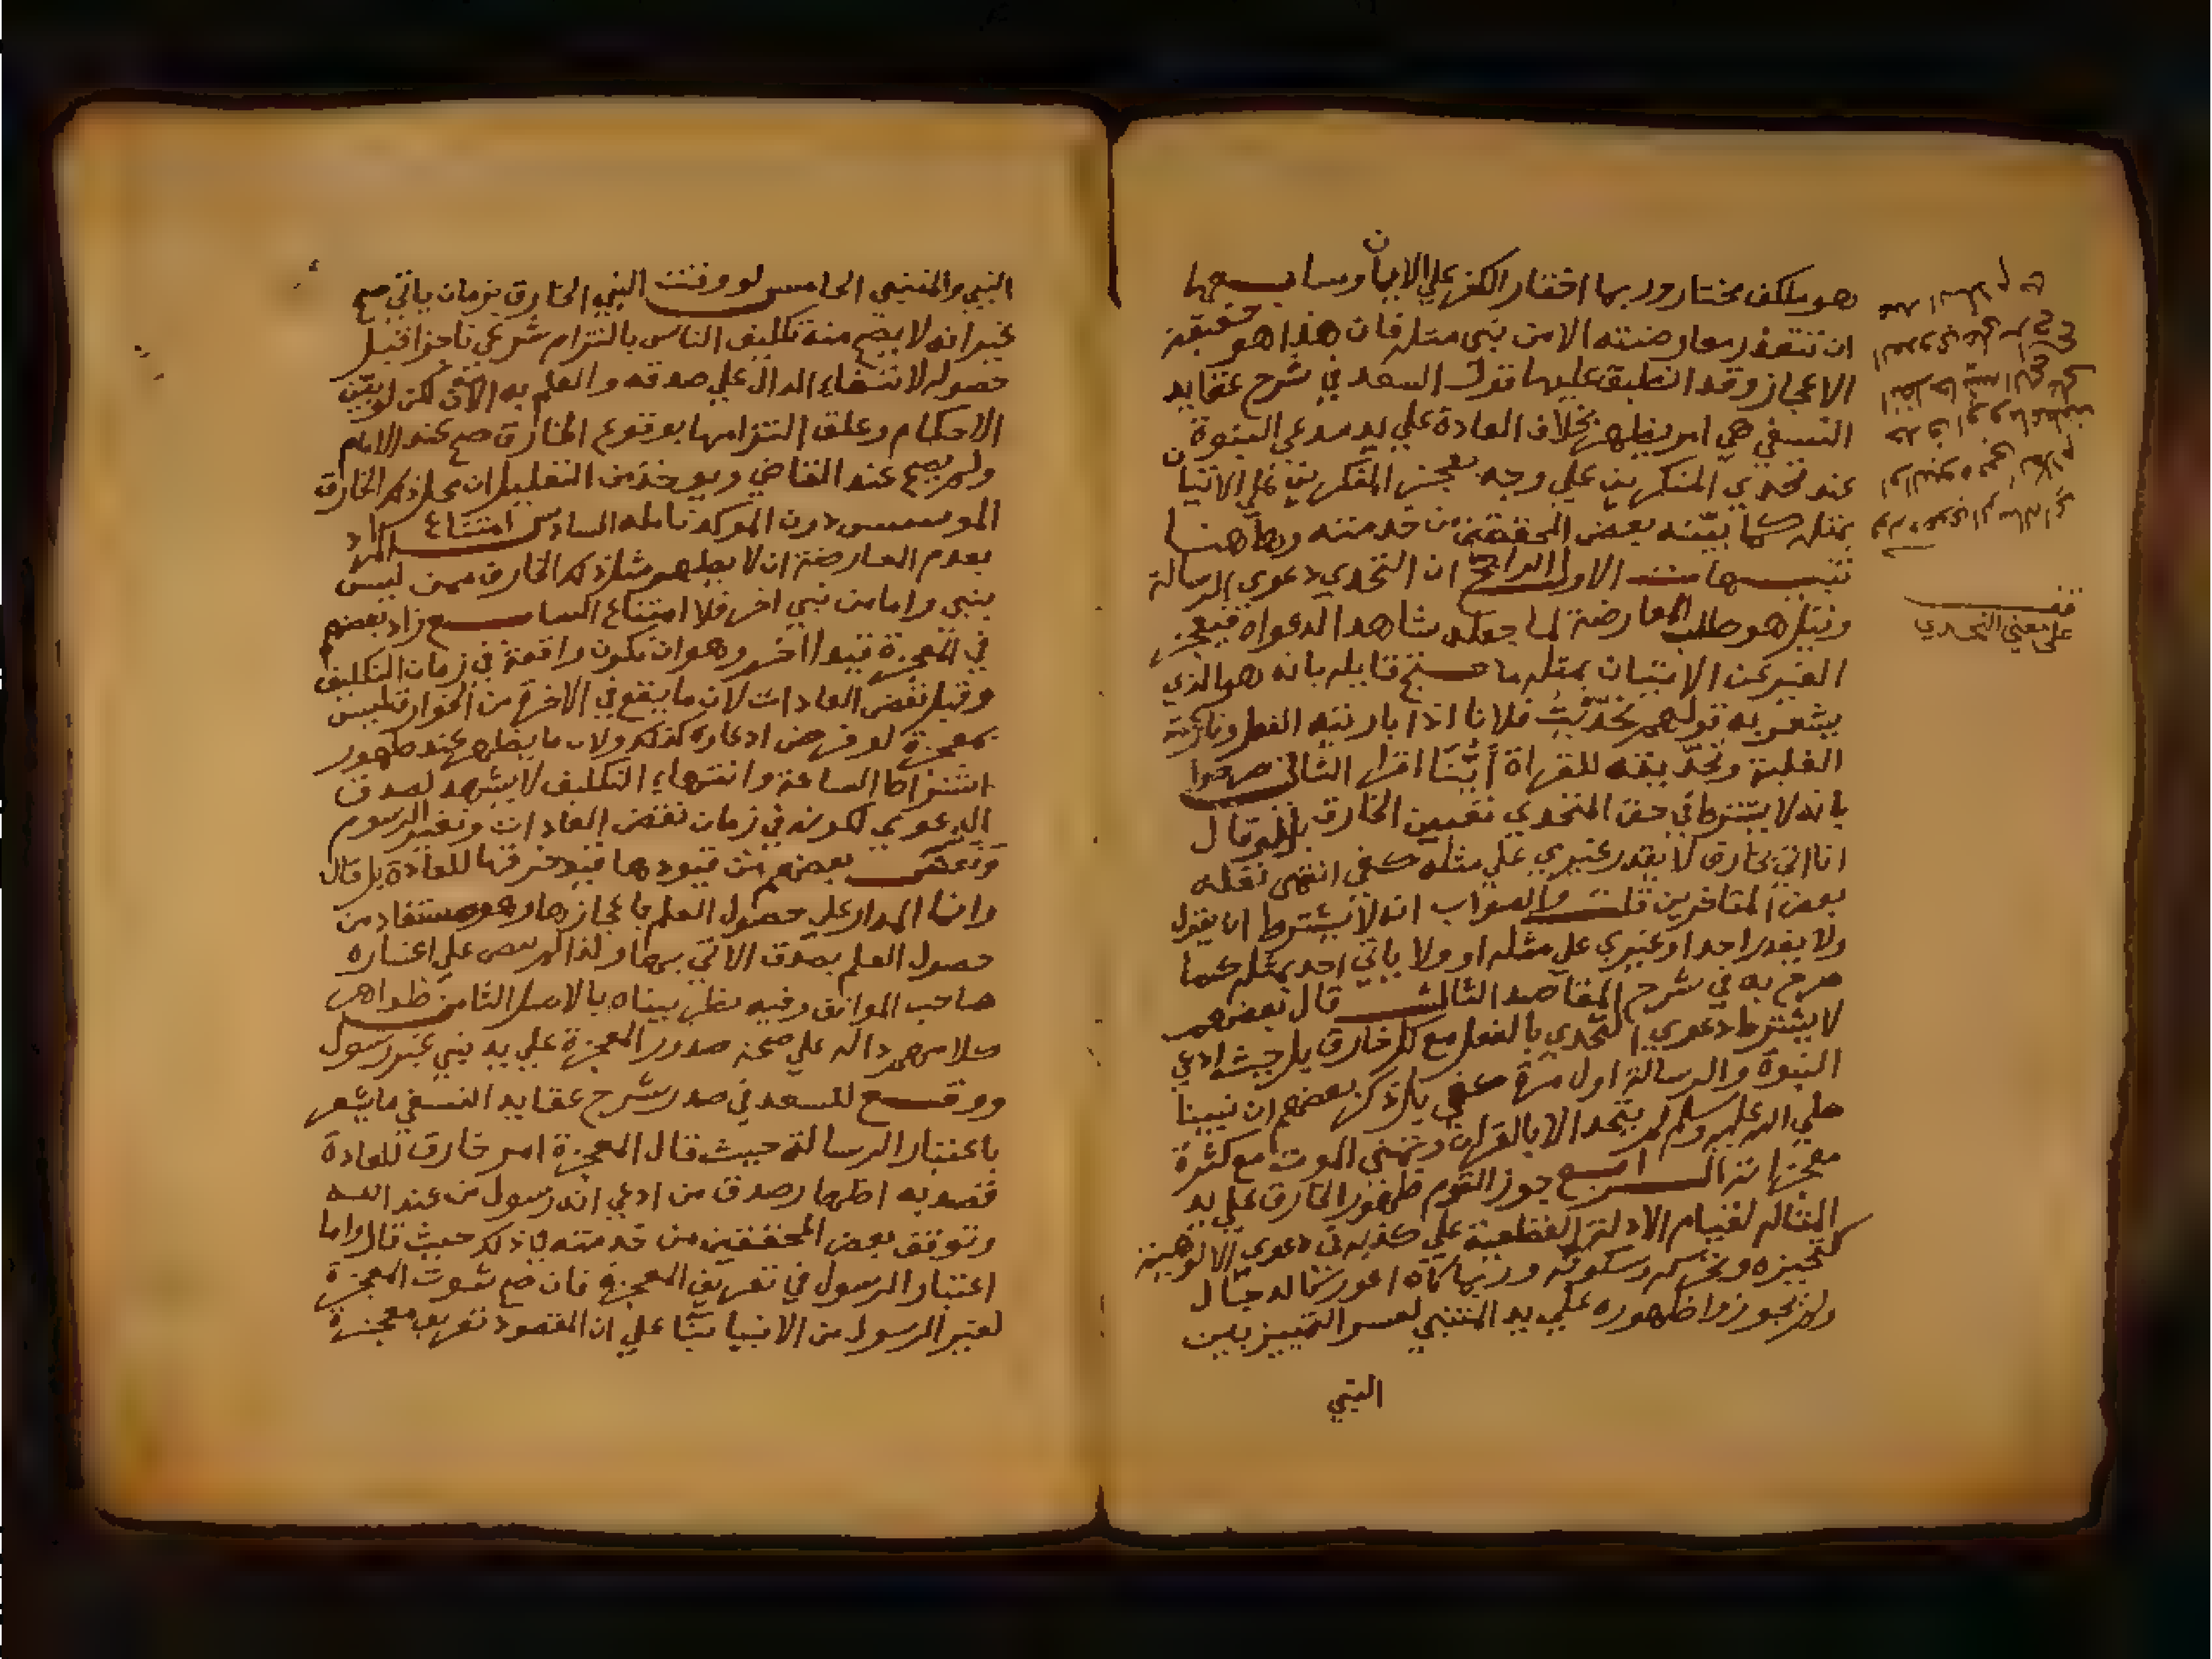 هو مكلف مختار وربما اختار الكفر علي الايمان وسابعها
ان تتعذر معارضته الا من نبي مثله فان هذا هو حقيقة
الاعجاز وقد انطبق عليها قول السعد في شرح عقايد
النسفي هي امر يظهر بخلاف العادة علي يد مدعي النبوة
عند تحدي المنكرين علي وجه يعجز المنكرين عن الاتيان
بمثله كما بينه بعض المحققين من خدمته وهاهنا
تنبيهات الاول الراجح ان التحدي دعوي الرسالة
وقيل هو طلب المعارضة لما جعله شاهدا لدعواه فيعجز
الغير عن الاتيان بمثله ما قابله بانه هو الذي
يشعر به قولهم تحديت فلانا اذا باريته الفعل ونازعته
الغلبة وتحديته للقراة أينا اقرا الثاني صرحوا
بانه لا يشترط في حق المتحدي تعيين الخارق بل لو قال
انا اتي بخارق لا يقدر غيري علي مثله كفي انتهي نقله
بعض المتاخرين قلت والصواب انه لا يشترط ان يقول
ولا يقدر احد او غيري علي مثله او ولا ياتي احد بمثله كما
صرح به في شرح المقاصد الثالث قال بعضهم
لا يشترط دعوي التحدي بالفعل مع كل خارق بل حيث ادعي
النبوة والرسالة اول مرة كفي بل ذكر بعضهم ان نبينا
صلي الله عليه وسلم لم يتحد الا بالقران وتمني الموت مع كثرة
معجزاته الرابع جوز القوم ظهور الخارق علي يد
المتاله لقيام الادلة القطعية علي كذبه في دعوي الالوهية
كتحيزه وتحركه وسكونه وربما كان اعور كالدجال
ولم يجوزوا ظهوره علي يد المتنبي لعسر التمييز بين
النبي
قف
علي معني التحدي
النبي والمتنبي الخامس لو وقت النبي الخارق بزمان ياتي صح
غير انه لا يصح منه تكليف الناس بالتزام شرعي ناجزا قبل
حصوله لانتفاء الدال علي صدقه والعلم به الان لكن لو بين
الاحكام وعلق التزامها بوقوع الخارق صح عند الامام
ولم يصح عند القاضي ويوخذ من التعليل ان محل ذلك الخارق
الموسس دون الموكد تامله السادس امتناع المراد
بعدم المعارضة ان لا يظهر مثل ذلك الخارق ممن ليس
بنبي واما من نبي اخر فلا امتناع السابع زاد بعضهم
في المعجزة قيدا اخر وهو ان تكون واقعة في زمان التكليف
وقبل نقض العادات لان ما يقع في الاخرة من الخوارق ليس
بمعجزة لو فرض ادعاؤه كذلك ولان ما يظهر عند ظهور
اشراط الساعة وانتهاء التكليف لا يشهد لصدق
الدعوي لكونه في زمان نقض العادات وتغير الرسوم
ونقص بعضهم من قيودها قيد خرقها للعادة بل قال
وانما المدار علي حصول العلم باعجازها وهو مستفاد من
حصول العلم بصدق الاتي بها ولذا لم ينص علي اعتباره
صاحب المواقف وفيه نظر بيناه بالاصل الثامن ظواهر
كلامهم دالة علي صحة صدور المعجزة علي يد نبي غير رسول
ووقع للسعد في صدر شرح عقايد النسفي ما يشعر
باعتبار الرسالة حيث قال المعجزة امر خارق للعادة
قصد به اظهار صدق من ادعي انه رسول من عند الله
وتوقف بعض المحققين من خدمته في ذلك حيث قال واما
اعتبار الرسول في تعريف المعجزة فان صح ثبوت المعجزة
لغير الرسول من الانبيا بنا علي ان المقصود تعريف معجزة